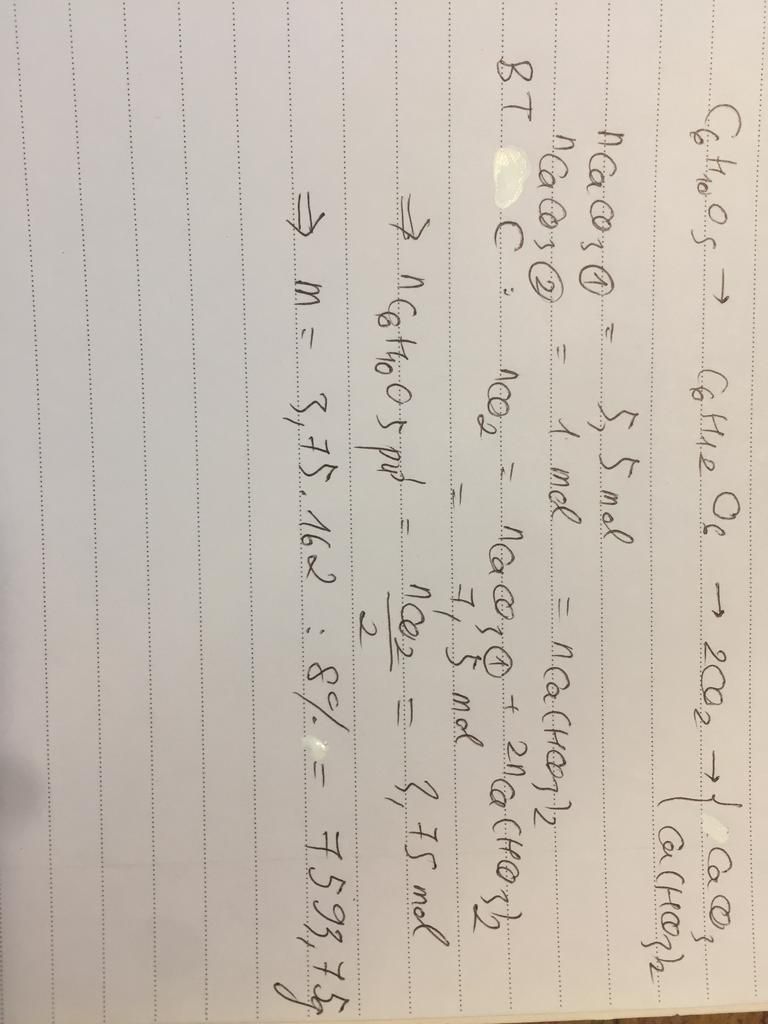 C6H10O5 → C6H12O6 → 2CO2 → { CaCO3
Ca(HCO3)2
nCaCO3 ① = 5,5 mol
nCaCO3 ② = 1 mol = nCa(HCO3)2
BT C : nCO2 = nCaCO3 ① + 2nCa(HCO3)2
= 7,5 mol
⇒ nC6H10O5 pứ = nCO2/2 = 3,75 mol
⇒ m = 3,75.162 : 8% = 7593,75g